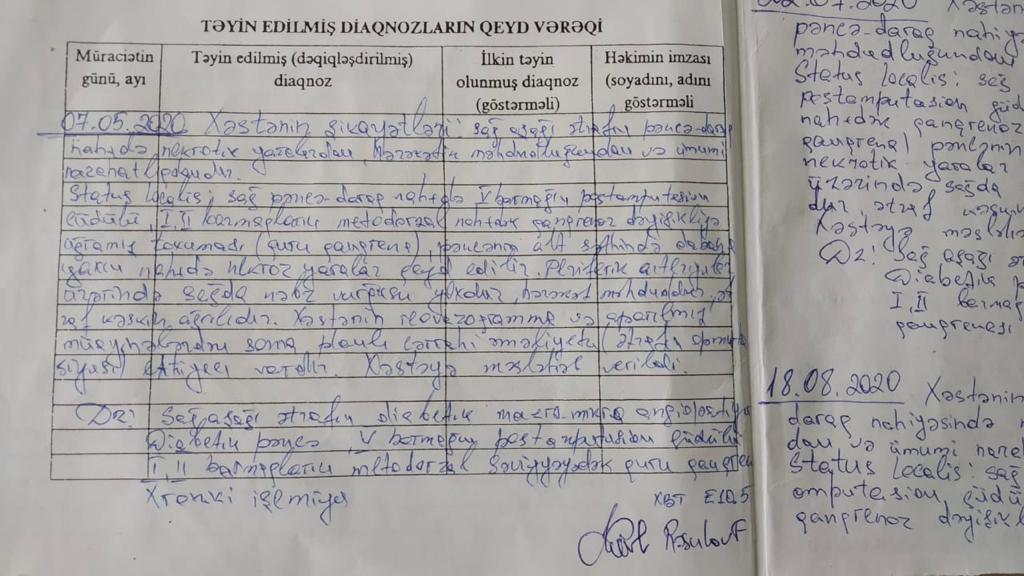 TƏYİN EDİLMİŞ DİAQNOZLARIN QEYD VƏRƏQİ
Müraciətin günü, ayı
Təyin edilmiş (dəqiqləşdirilmiş) diaqnoz
İlkin təyin olunmuş diaqnoz (göstərməli)
Həkimin imzası (soyadını, adını göstərməli
07.05.2020 Xəstənin şikayətləri: sağ aşağı ətrafın pəncə-daraq
nahidə nekrotik yaralardan, hərəkətin məhdudluğundan və ümumi
narahatlığadır.
Status Localis: sağ pəncə-daraq nahidə V barmağın postamputasion
güdülü, I, II barmaqların metodorzal nahidək qanqrenoz dəyişikliyə
uğramış toxuması (quru qanqrena), pəncənin alt səthində daban
nahidə nekroz yaralar qeyd edilir. Periferik arteriyalar
üzərində sağda nəbz vurğusu yoxdur, hərəkət məhduddur, ət
raf kəskin ağrılıdır. Xəstənin reovazogramma və aparılmış
müayinələrdən sonra planlı cərrahi əməliyyatın (ətrafın amputa
siyası) ehtiyacı vardır. Xəstəyə məsləhət verildi.
Dz: Sağ aşağı ətrafın diabetik makro-mikro angiopatiya
Diabetik pəncə, V barmağın postamputasion güdülü
I, II barmaqların metodorzal səviyyəyədək quru qanqren
Xroniki işemiya
XBT E10.5
02.07.2020 Xəstənin
pəncə-daraq nahiyə
məhdudluğundan
Status Localis: sağ
postamputasion güdü
nahidək qanqrenoz
qanqrena) pəncənin
nekrotik yaralar
üzərində sağda
dur, ətraf
Xəstəyə məsləhə
Dz: Sağ aşağı ət
Diabetik p
I, II barmaq
qanqrenası
18.08.2020 Xəstənin
daraq nahiyəsində n
dan və ümumi narah
Status localis: sağ
amputasion, güdü
qanqrenoz dəyişikl